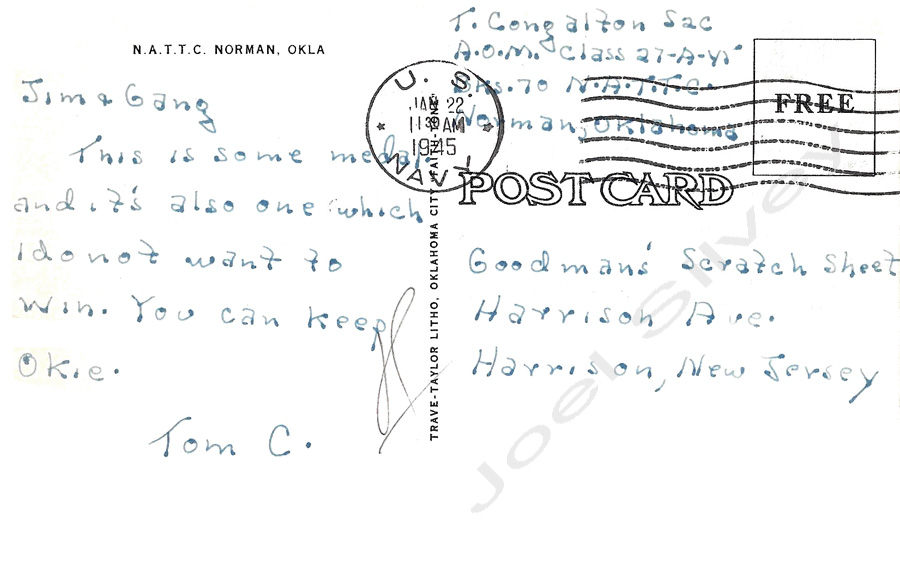 N.A.T.T.C. NORMAN, OKLA
Jim & Gang
This is some medal.
and it's also one which
i do not want to
win. You can keep
Okie.
Tom C.
TRAVE-TAYLOR LITHO, OKLAHOMA CITY
U. S.
JAN 22
11 30 AM
1945
NAVY
T. Congalton Sac
A.O.M. Class 27-A-
Bks. 70 N.A.T.T.C.
Norman, Oklahoma
FREE
POST CARD
Goodman's Scratch Sheet
Harrison Ave.
Harrison, New Jersey
Joel Silvey